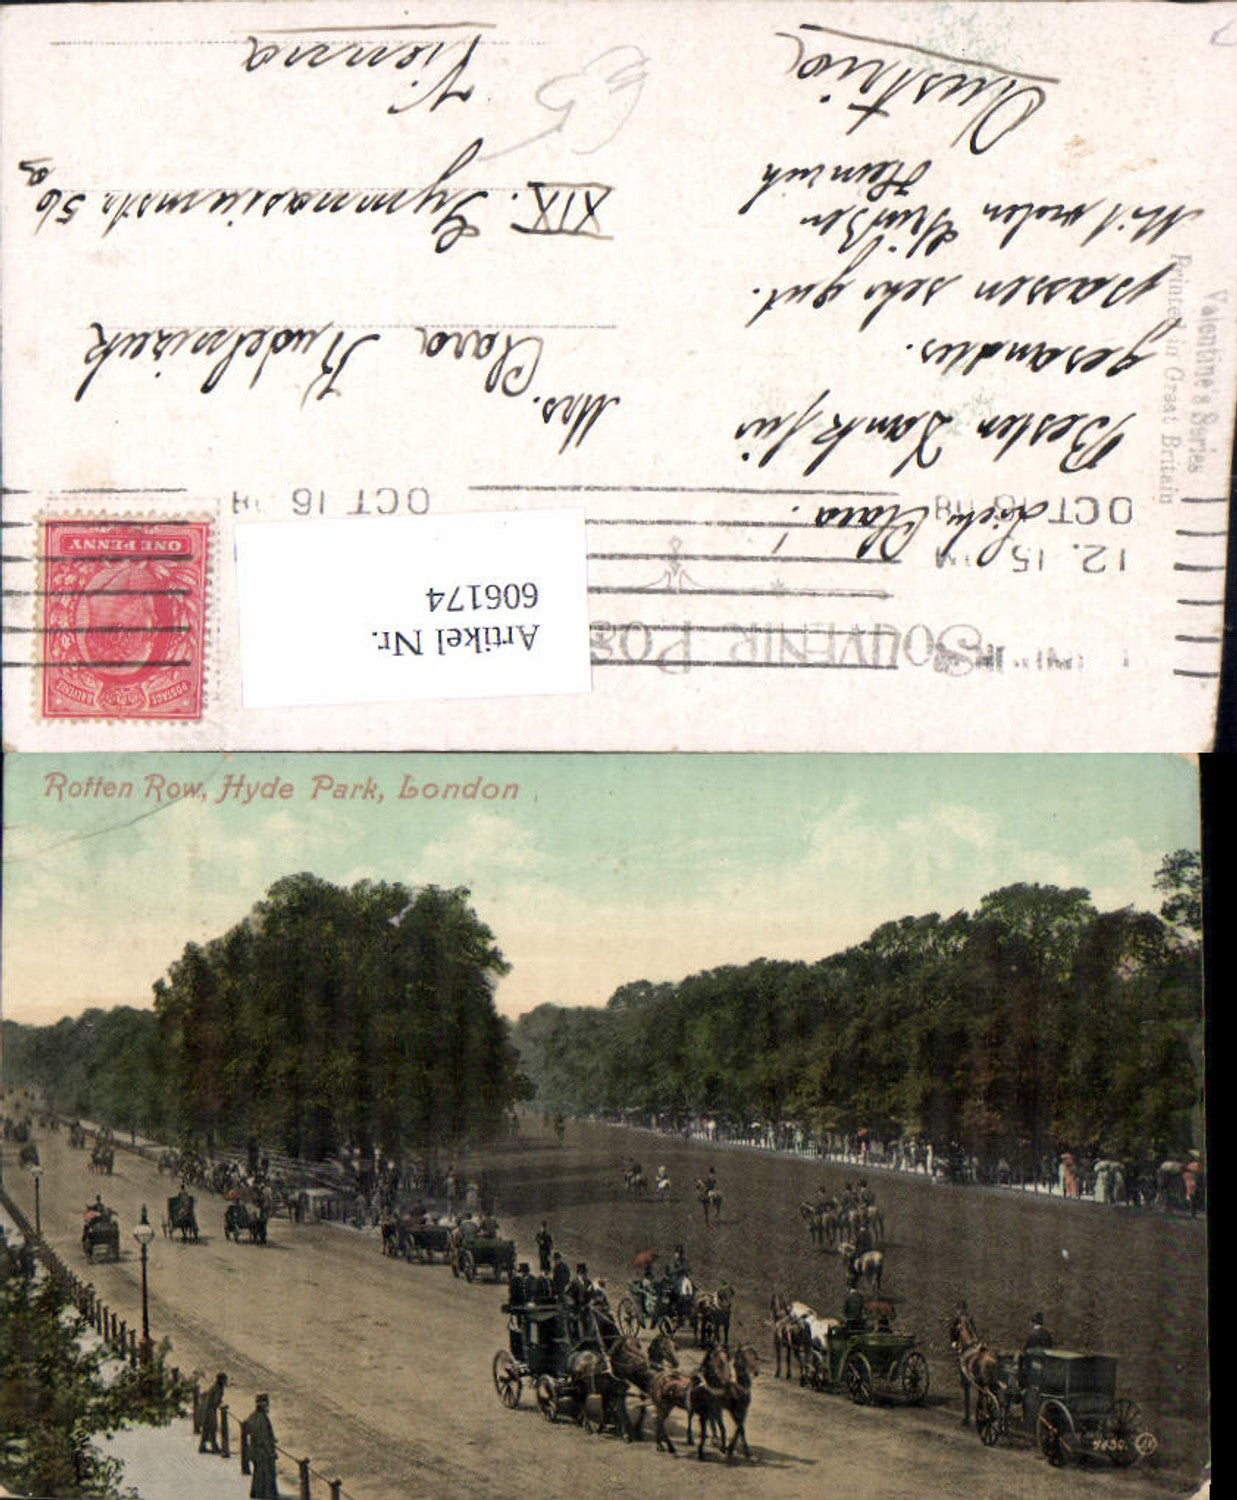 SOUVENIR POS
Valentine's Series
Printed in Great Britain
Artikel Nr.
606174
POSTAGE
ONE PENNY
12. 15 PM
OCT 16 08
OCT 16 08
Liebe Clara!
Besten Dank für
gesandtes.
passen sehr gut.
Mit vielen Grüßen
Heinrich
Austria
Mrs. Clara
XIX. Gymnasiumstr. 56
Vienna
Rotten Row, Hyde Park, London